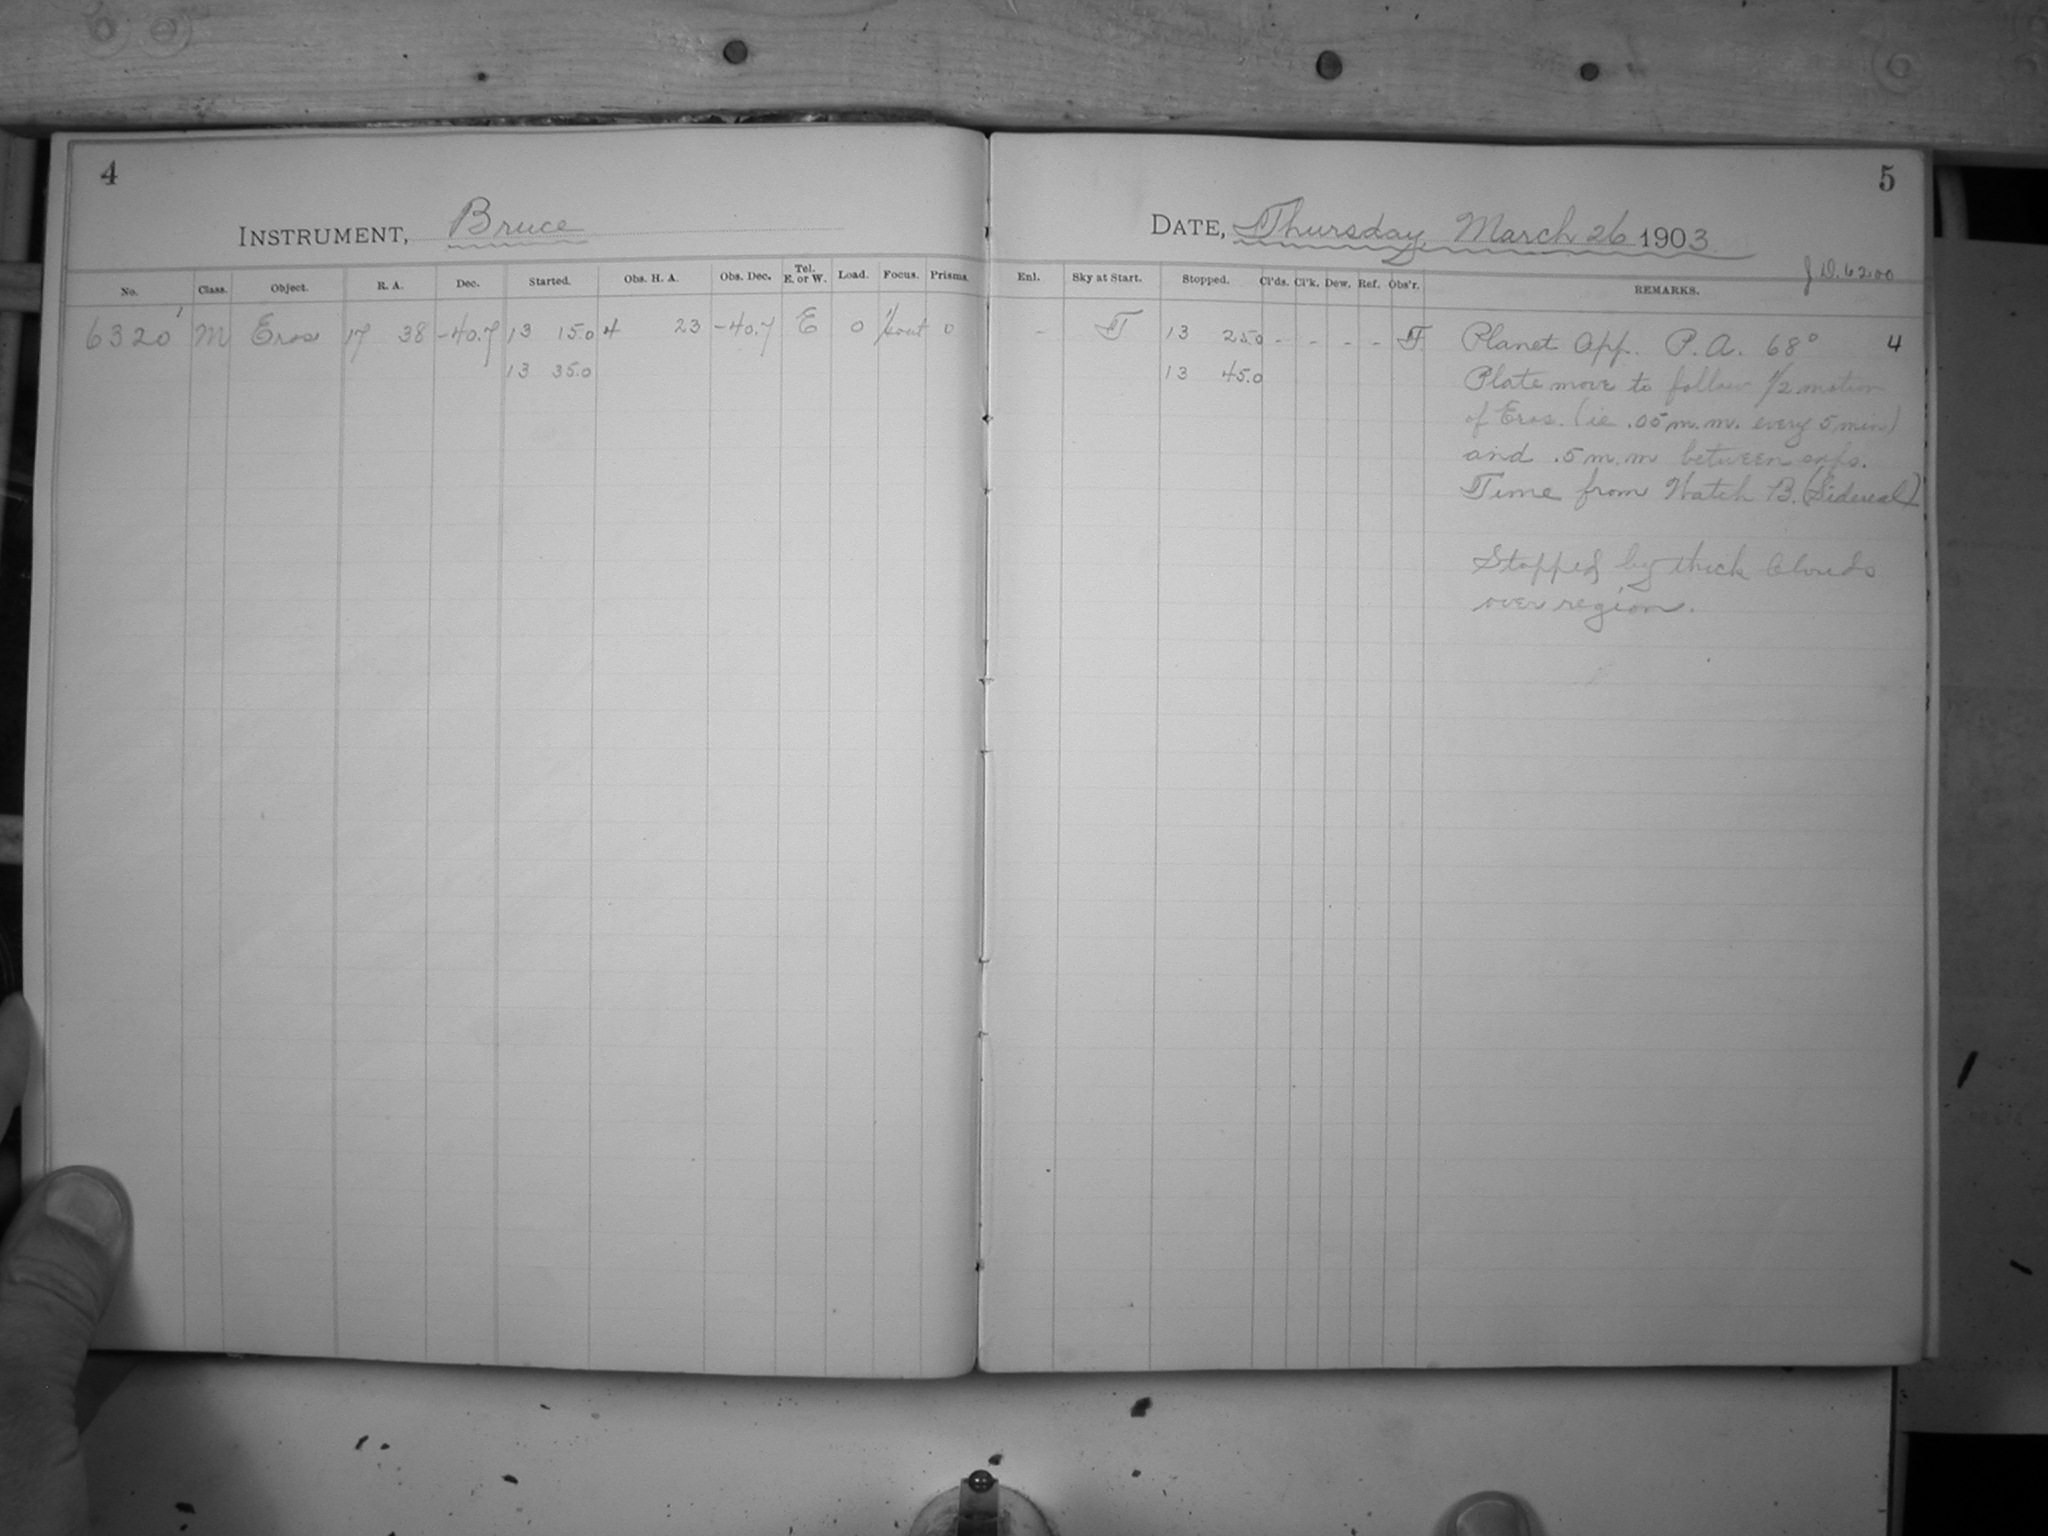 4
INSTRUMENT, Bruce
No. Class. Object. R. A. Dec. Started. Obs. H. A. Obs. Dec. Tel. E. or W. Load. Focus. Prisms.
6320 M Eros 17 38 -40.7 13 15.0 4 23 -40.7 E 0 out 0
13 35.0
5
DATE, Thursday, March 26 1903.
J.D. 6200
Enl. Sky at Start. Stopped. Cl'ds. Cl'k. Dew. Ref. Obs'r. REMARKS.
- F 13 25.0 - - - - F. Planet App. P.A. 68° 4
13 45.0 Plate move to follow 1/2 motion
of Eros. (ie .05 m.m. every 5 min)
and .5 m.m between exps.
Time from Watch B. (Sidereal)
Stopped by thick clouds
over region.